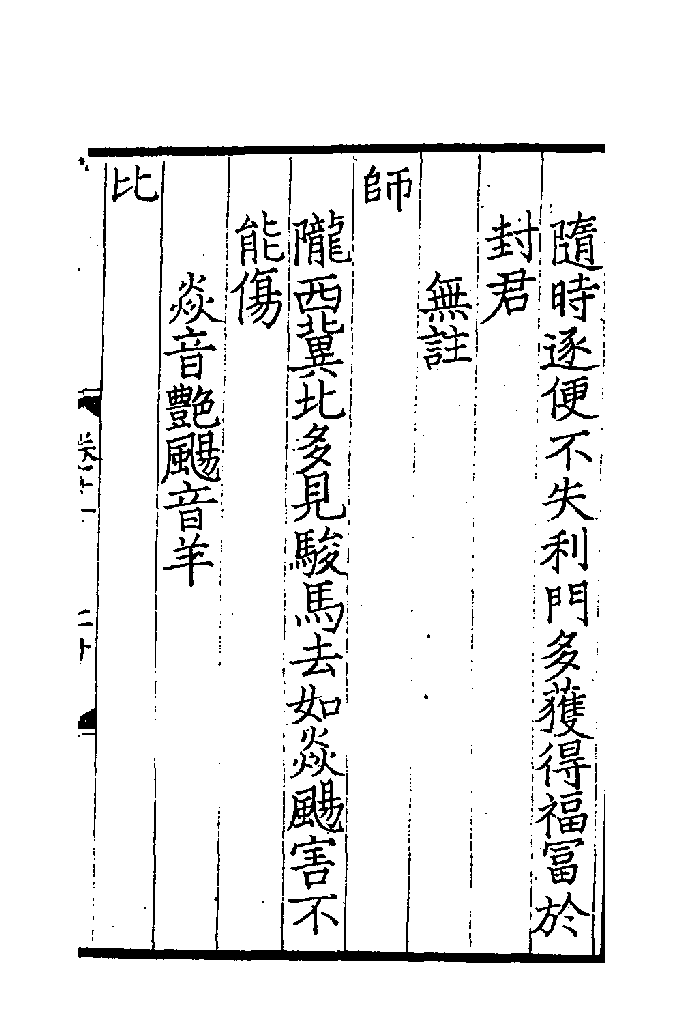 隨時逐便不失利門多獲得福冨於
封君
無註
師
隴西冀北多見駿馬去如焱颺害不
能傷
焱音艷颺音羊
比